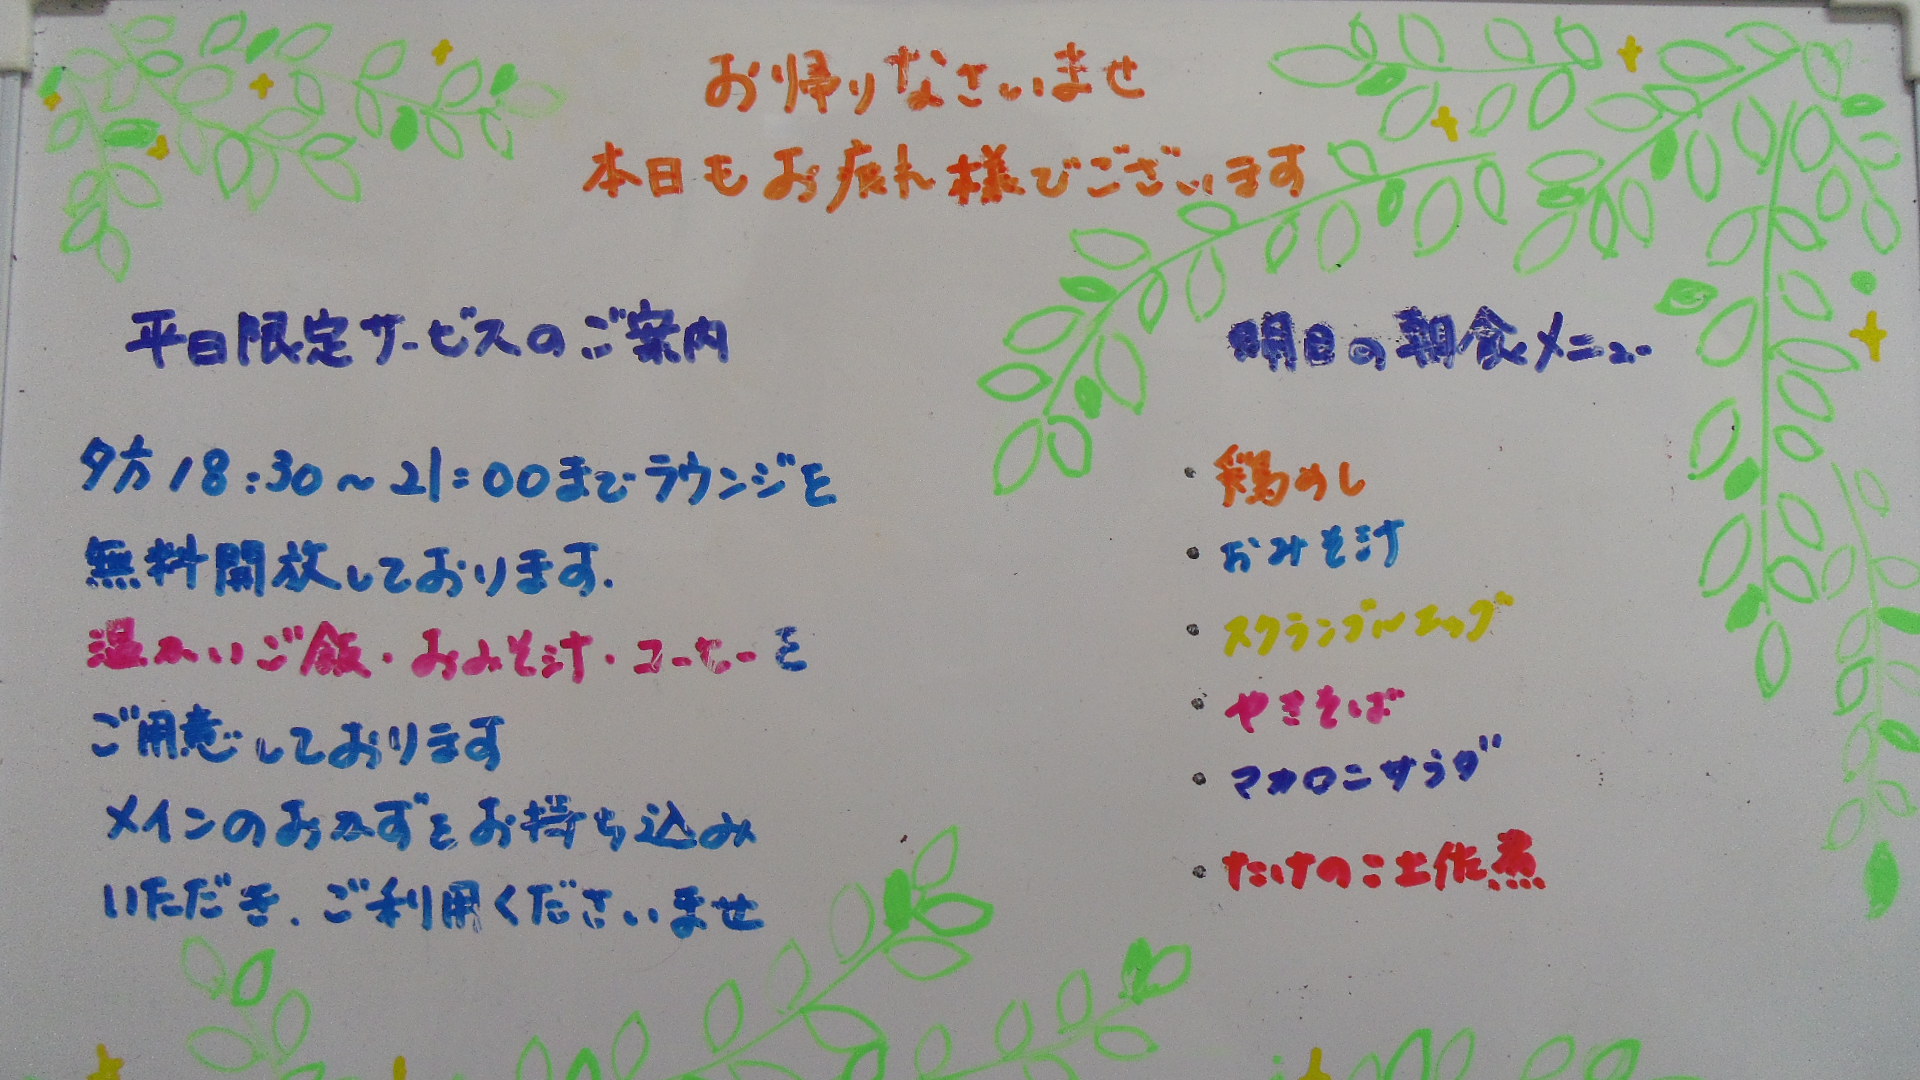 お帰りなさいませ
本日もお疲れ様でございます
平日限定サービスのご案内
夕方18:30～21:00までラウンジを
無料開放しております.
温かいご飯・おみそ汁・コーヒーを
ご用意しております
メインのおかずをお持ち込み
いただき、ご利用くださいませ
明日の朝食メニュー
・鶏めし
・おみそ汁
・スクランブルエッグ
・やきそば
・マカロニサラダ
・たけのこ土佐煮